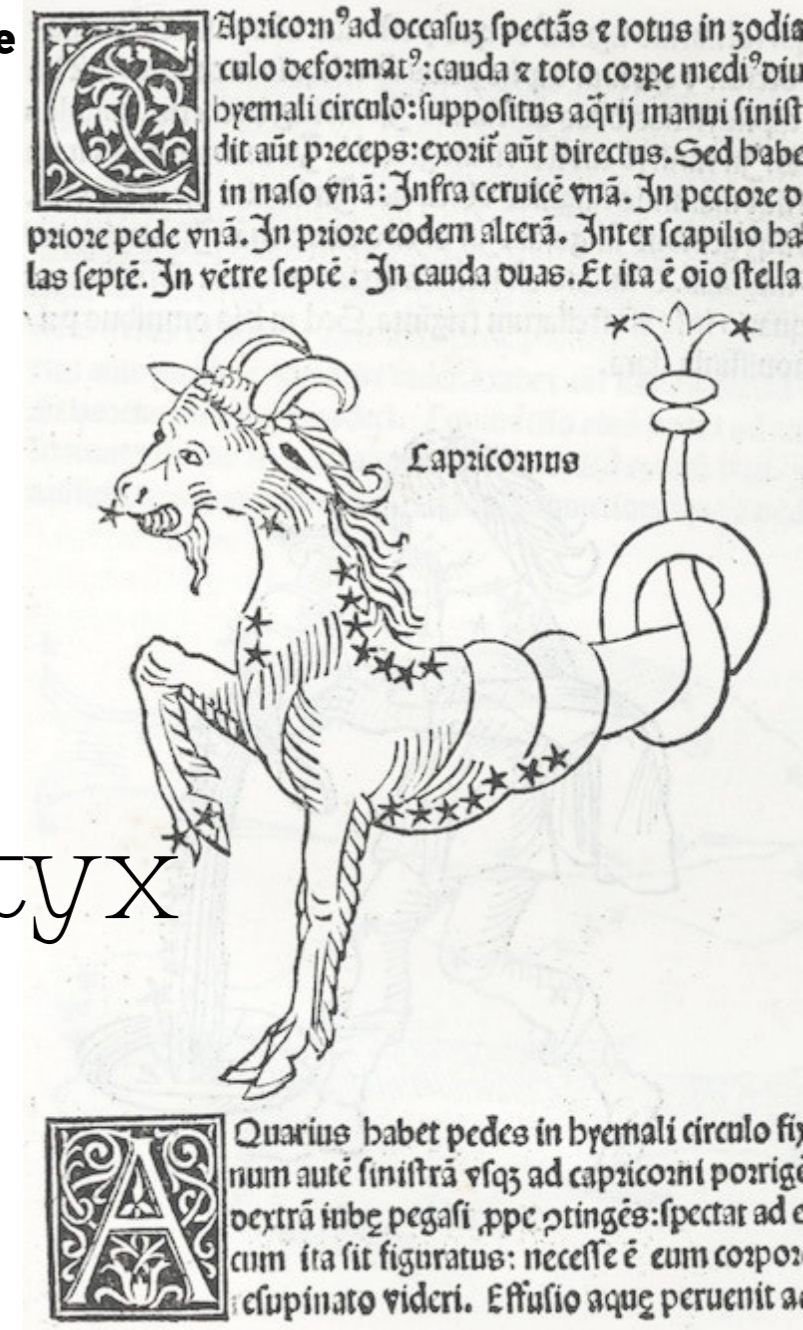 e
CApricorn⁹ ad occasuʒ spectãs ⁊ totus in zodia
culo deformat⁹: cauda ⁊ toto corpe medi⁹ diu
hyemali circulo: suppositus aq̃rij manui sinist
dit aũt preceps: exorit̃ aũt directus. Sed habe
in naso vnã: Infra ceruicẽ vnã. In pectore d
priore pede vnã. In priore eodem alterã. Inter scapilio ha
las septẽ. In vẽtre septẽ. In cauda duas. Et ita ẽ oio stella
Capricornus
tyx
AQuarius habet pedes in hyemali circulo fix
num autẽ sinistrã vsqʒ ad capricorni porrige
dextrã iubę pegasi ꝓpe ↄtingẽs: spectat ad e
cum ita sit figuratus: necesse ẽ eum corpor
resupinato videri. Effusio aquę peruenit ad